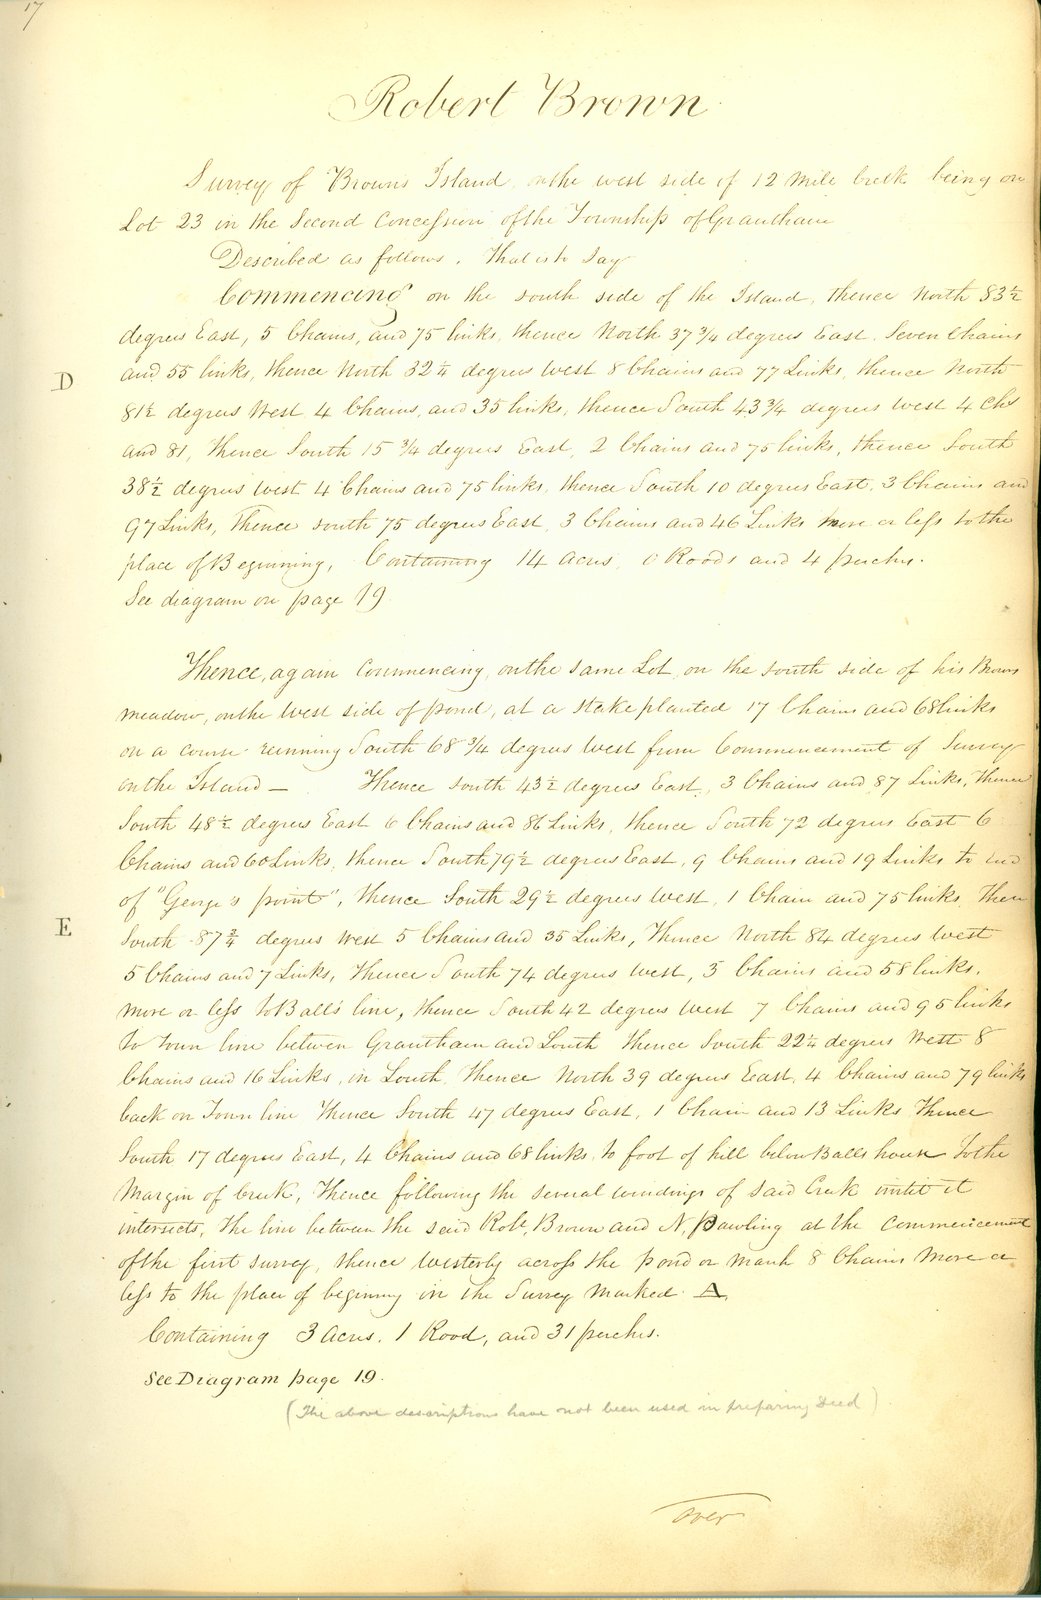 17
Robert Brown
Survey of Browns Island, on the west side of 12 Mile Creek being on
Lot 23 in the Second Concession of the Township of Grantham
Described as follows. That is to Say
Commencing on the south side of the Island, thence North 83½
degrees East, 5 Chains, and 75 links, thence North 37¾ degrees East. Seven Chains
D
and 55 links, thence North 32¼ degrees West 8 Chains and 77 Links, thence North
81½ degrees West 4 Chains, and 35 links, thence South 43¾ degrees West 4 Chs
and 81, thence South 15¾ degrees East, 2 Chains and 75 links, thence South
38½ degrees West 4 Chains and 75 links, thence South 10 degrees East, 3 Chains and
97 Links, Thence south 75 degrees East, 3 Chains and 46 Links more or less to the
place of Beginning, Containing 14 acres, 0 Roods and 4 perches.
See diagram on page 19
Thence, again Commencing, on the same Lot, on the south side of his Brown
meadow, on the West side of pond, at a stake planted 17 Chains and 68 links
on a course running South 68¾ degrees West from Commencement of Survey
on the Island — Thence south 43½ degrees East, 3 Chains and 87 Links, thence
South 48½ degrees East 6 Chains and 86 Links, thence South 72 degrees East 6
Chains and 60 Links, thence South 79½ degrees East, 9 Chains and 19 Links to end
of "George's point", thence South 29½ degrees West, 1 Chain and 75 links, Thence
E
South 87¾ degrees West 5 Chains and 35 Links, Thence North 84 degrees West
5 Chains and 7 Links, thence South 74 degrees West, 3 Chains and 58 links,
more or less to Ball's line, thence South 42 degrees West 7 Chains and 95 links
to town line between Grantham and Louth Thence South 22¼ degrees West 8
Chains and 16 Links, in Louth. Thence North 39 degrees East, 4 Chains and 79 links
back on Town line Thence South 47 degrees East, 1 Chain and 13 Links Thence
South 17 degrees East, 4 Chains and 68 links to foot of hill below Balls house To the
Margin of Creek, Thence following the several windings of said Creek until it
intersects, the line between the said Robt. Brown and N. Pawling at the Commencement
of the first survey, thence Westerly across the pond or marsh 8 Chains more or
less to the place of beginning in the Survey marked A
Containing 3 Acres, 1 Rood, and 31 perches.
See Diagram page 19.
(The above descriptions have not been used in preparing Deed)
Over